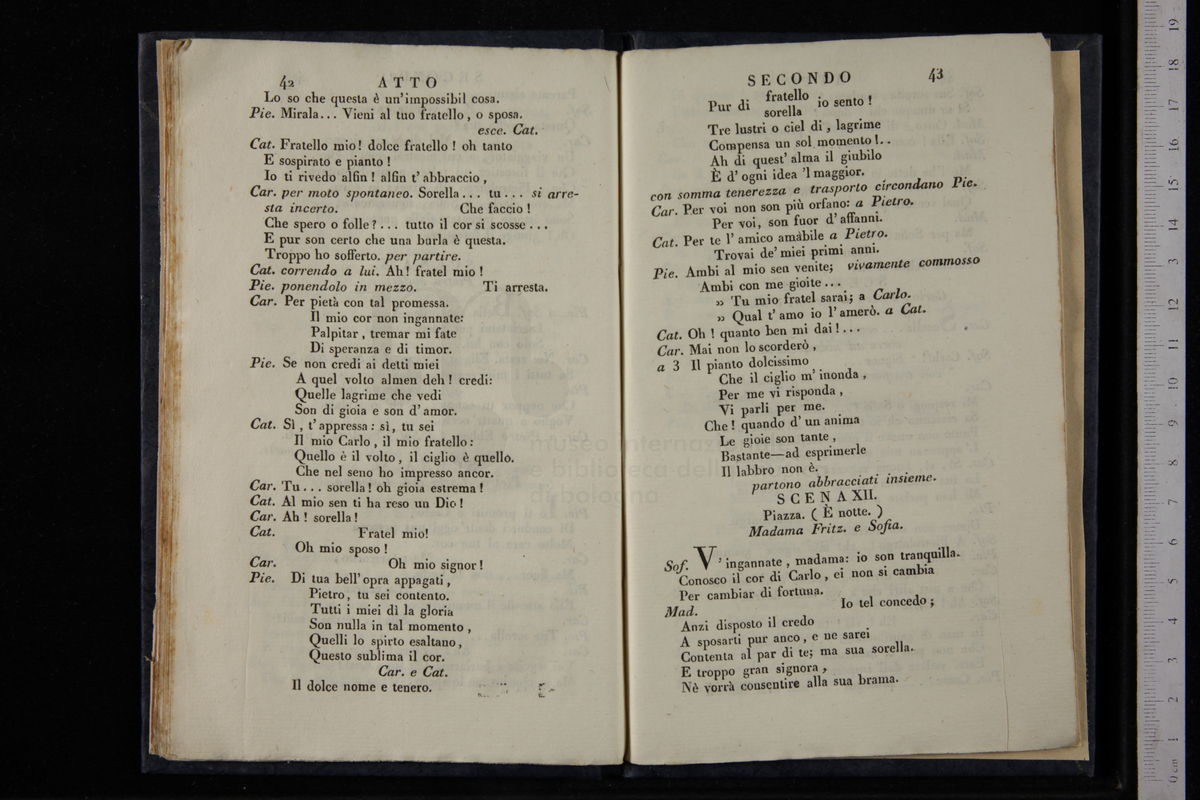 42 ATTO
Lo so che questa è un'impossibil cosa.
Pie. Mirala... Vieni al tuo fratello, o sposa.
esce. Cat.
Cat. Fratello mio! dolce fratello! oh tanto
E sospirato e pianto!
Io ti rivedo alfin! alfin t'abbraccio,
Car. per moto spontaneo. Sorella... tu... si arre-
sta incerto. Che faccio!
Che spero o folle?... tutto il cor si scosse...
E pur son certo che una burla è questa.
Troppo ho sofferto. per partire.
Cat. correndo a lui. Ah! fratel mio!
Pie. ponendolo in mezzo. Ti arresta.
Car. Per pietà con tal promessa.
Il mio cor non ingannate:
Palpitar, tremar mi fate
Di speranza e di timor.
Pie. Se non credi ai detti miei
A quel volto almen deh! credi:
Quelle lagrime che vedi
Son di gioia e son d'amor.
Cat. Sì, t'appressa: sì, tu sei
Il mio Carlo, il mio fratello:
Quello è il volto, il ciglio è quello.
Che nel seno ho impresso ancor.
Car. Tu... sorella! oh gioia estrema!
Cat. Al mio sen ti ha reso un Dio!
Car. Ah! sorella!
Cat. Fratel mio!
Oh mio sposo!
Car. Oh mio signor!
Pie. Di tua bell'opra appagati,
Pietro, tu sei contento.
Tutti i miei dì la gloria
Son nulla in tal momento,
Quelli lo spirto esaltano,
Questo sublima il cor.
Car. e Cat.
Il dolce nome e tenero.
SECONDO 43
Pur di fratello io sento!
sorella
Tre lustri o ciel di, lagrime
Compensa un sol momento!..
Ah di quest'alma il giubilo
È d'ogni idea 'l maggior.
con somma tenerezza e trasporto circondano Pie.
Car. Per voi non son più orfano: a Pietro.
Per voi, son fuor d'affanni.
Cat. Per te l'amico amàbile a Pietro.
Trovai de'miei primi anni.
Pie. Ambi al mio sen venite; vivamente commosso
Ambi con me gioite...
» Tu mio fratel sarai; a Carlo.
» Qual t'amo io l'amerò. a Cat.
Cat. Oh! quanto ben mi dai!...
Car. Mai non lo scorderò,
a 3 Il pianto dolcissimo
Che il ciglio m'inonda,
Per me vi risponda,
Vi parli per me.
Che! quando d'un anima
Le gioie son tante,
Bastante—ad esprimerle
Il labbro non è.
partono abbracciati insieme.
SCENA XII.
Piazza. (È notte.)
Madama Fritz. e Sofia.
Sof. V'ingannate, madama: io son tranquilla.
Conosco il cor di Carlo, ei non si cambia
Per cambiar di fortuna.
Mad. Io tel concedo;
Anzi disposto il credo
A sposarti pur anco, e ne sarei
Contenta al par di te; ma sua sorella.
E troppo gran signora,
Nè vorrà consentire alla sua brama.